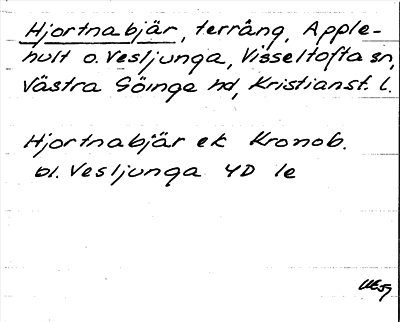 Hjortnabjär, terräng, Apple-
hult o. Vesljunga, Visseltofta sn,
Västra Göinge hd, Kristianst. l.
Hjortnabjär ek Kronob.
bl. Vesljunga 4D le